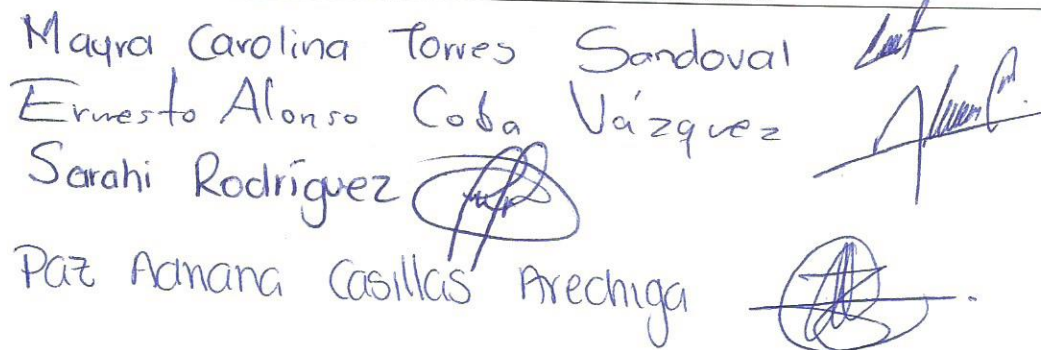 Mayra Carolina Torres Sandoval
Ernesto Alonso Coba Vázquez
Sarahi Rodríguez
Paz Adriana Casillas Arechiga